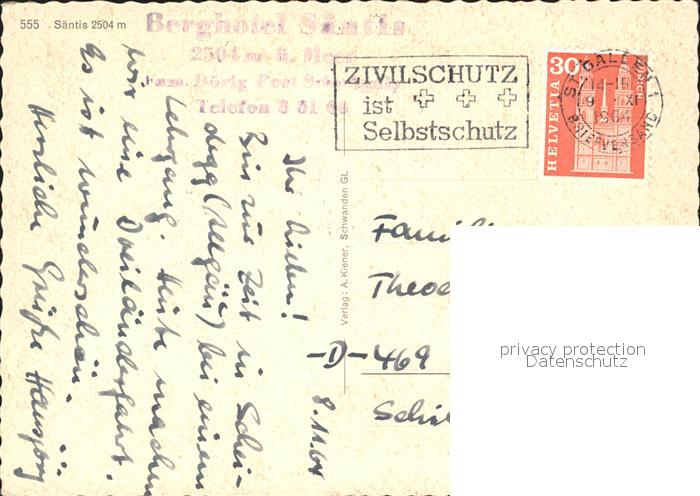 555 Säntis 2504 m
Berghotel Säntis
2504 m ü. Meer
Fam. Dörig Post
Telefon
ZIVILSCHUTZ
ist
Selbstschutz
HELVETIA
30
ST. GALLEN 1
14-15
9. XI
1964
BRIEFVERSAND
Verlag: A. Kiener, Schwanden GL
8.11.64
Ihr Lieben!
Bin zur Zeit in Schei-
degg (Allgäu) bei einem
Lehrgang. Heute machen
wir eine Dreiländerfahrt.
Es ist wunderschön.
Herzliche Grüße Hansjörg
Fami
Theo
-D-469
Schi
privacy protection
Datenschutz